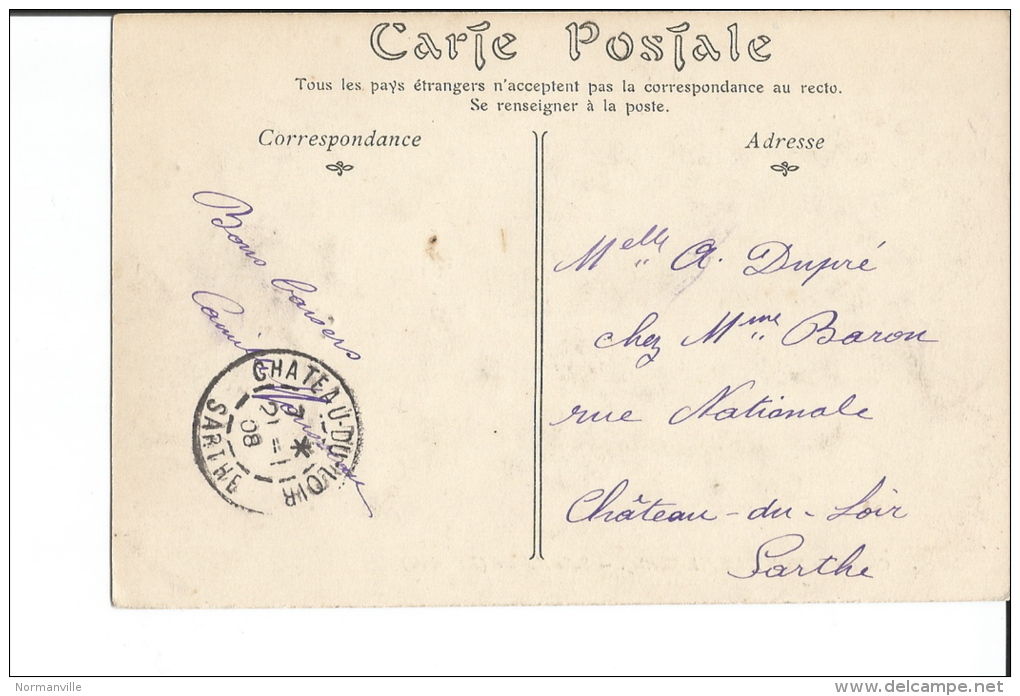 Carte Postale
Tous les pays étrangers n'acceptent pas la correspondance au recto.
Se renseigner à la poste.
Correspondance
Adresse
Bons baisers
Camille
CHATEAU-DU-LOIR
SARTHE
21 - 1
08
Melle A. Dupré
chez Mme Baron
rue Nationale
Château-du-Loir
Sarthe
Normanville
www.delcampe.net